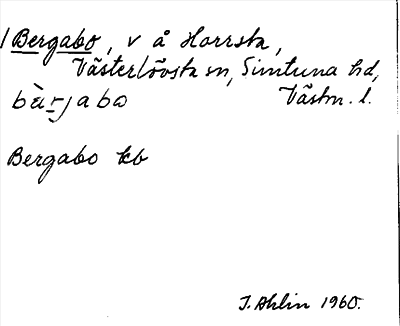 1 Bergabo, v å Horrsta,
Västerlövsta sn, Simtuna hd,
bàrjabo Västm. l.
Bergabo kb
J. Ahlin 1960.